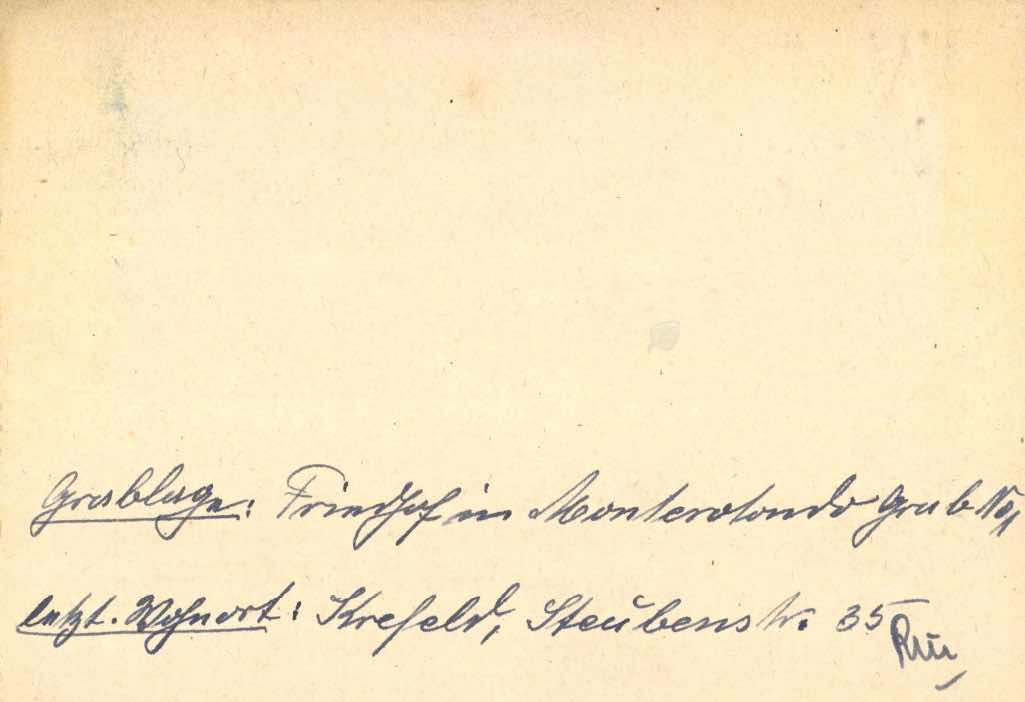 Grablage: Friedhof in Monterotondo Grab No 1
letzt. Wohnort: Krefeld, Steubenstr. 35